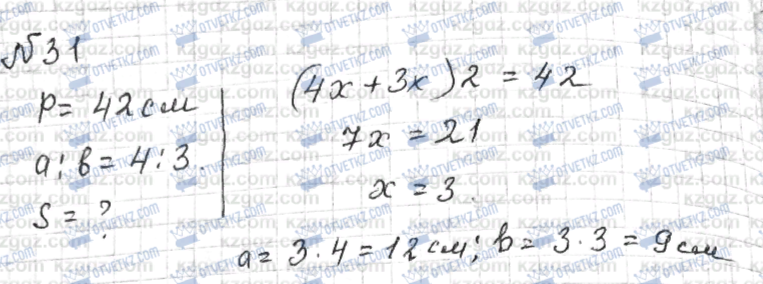 №31
P = 42 см
a : b = 4 : 3.
S = ?
(4x + 3x)2 = 42
7x = 21
x = 3.
a = 3 · 4 = 12 см; b = 3 · 3 = 9 см
OTVETKZ.COM
kzgaz.com